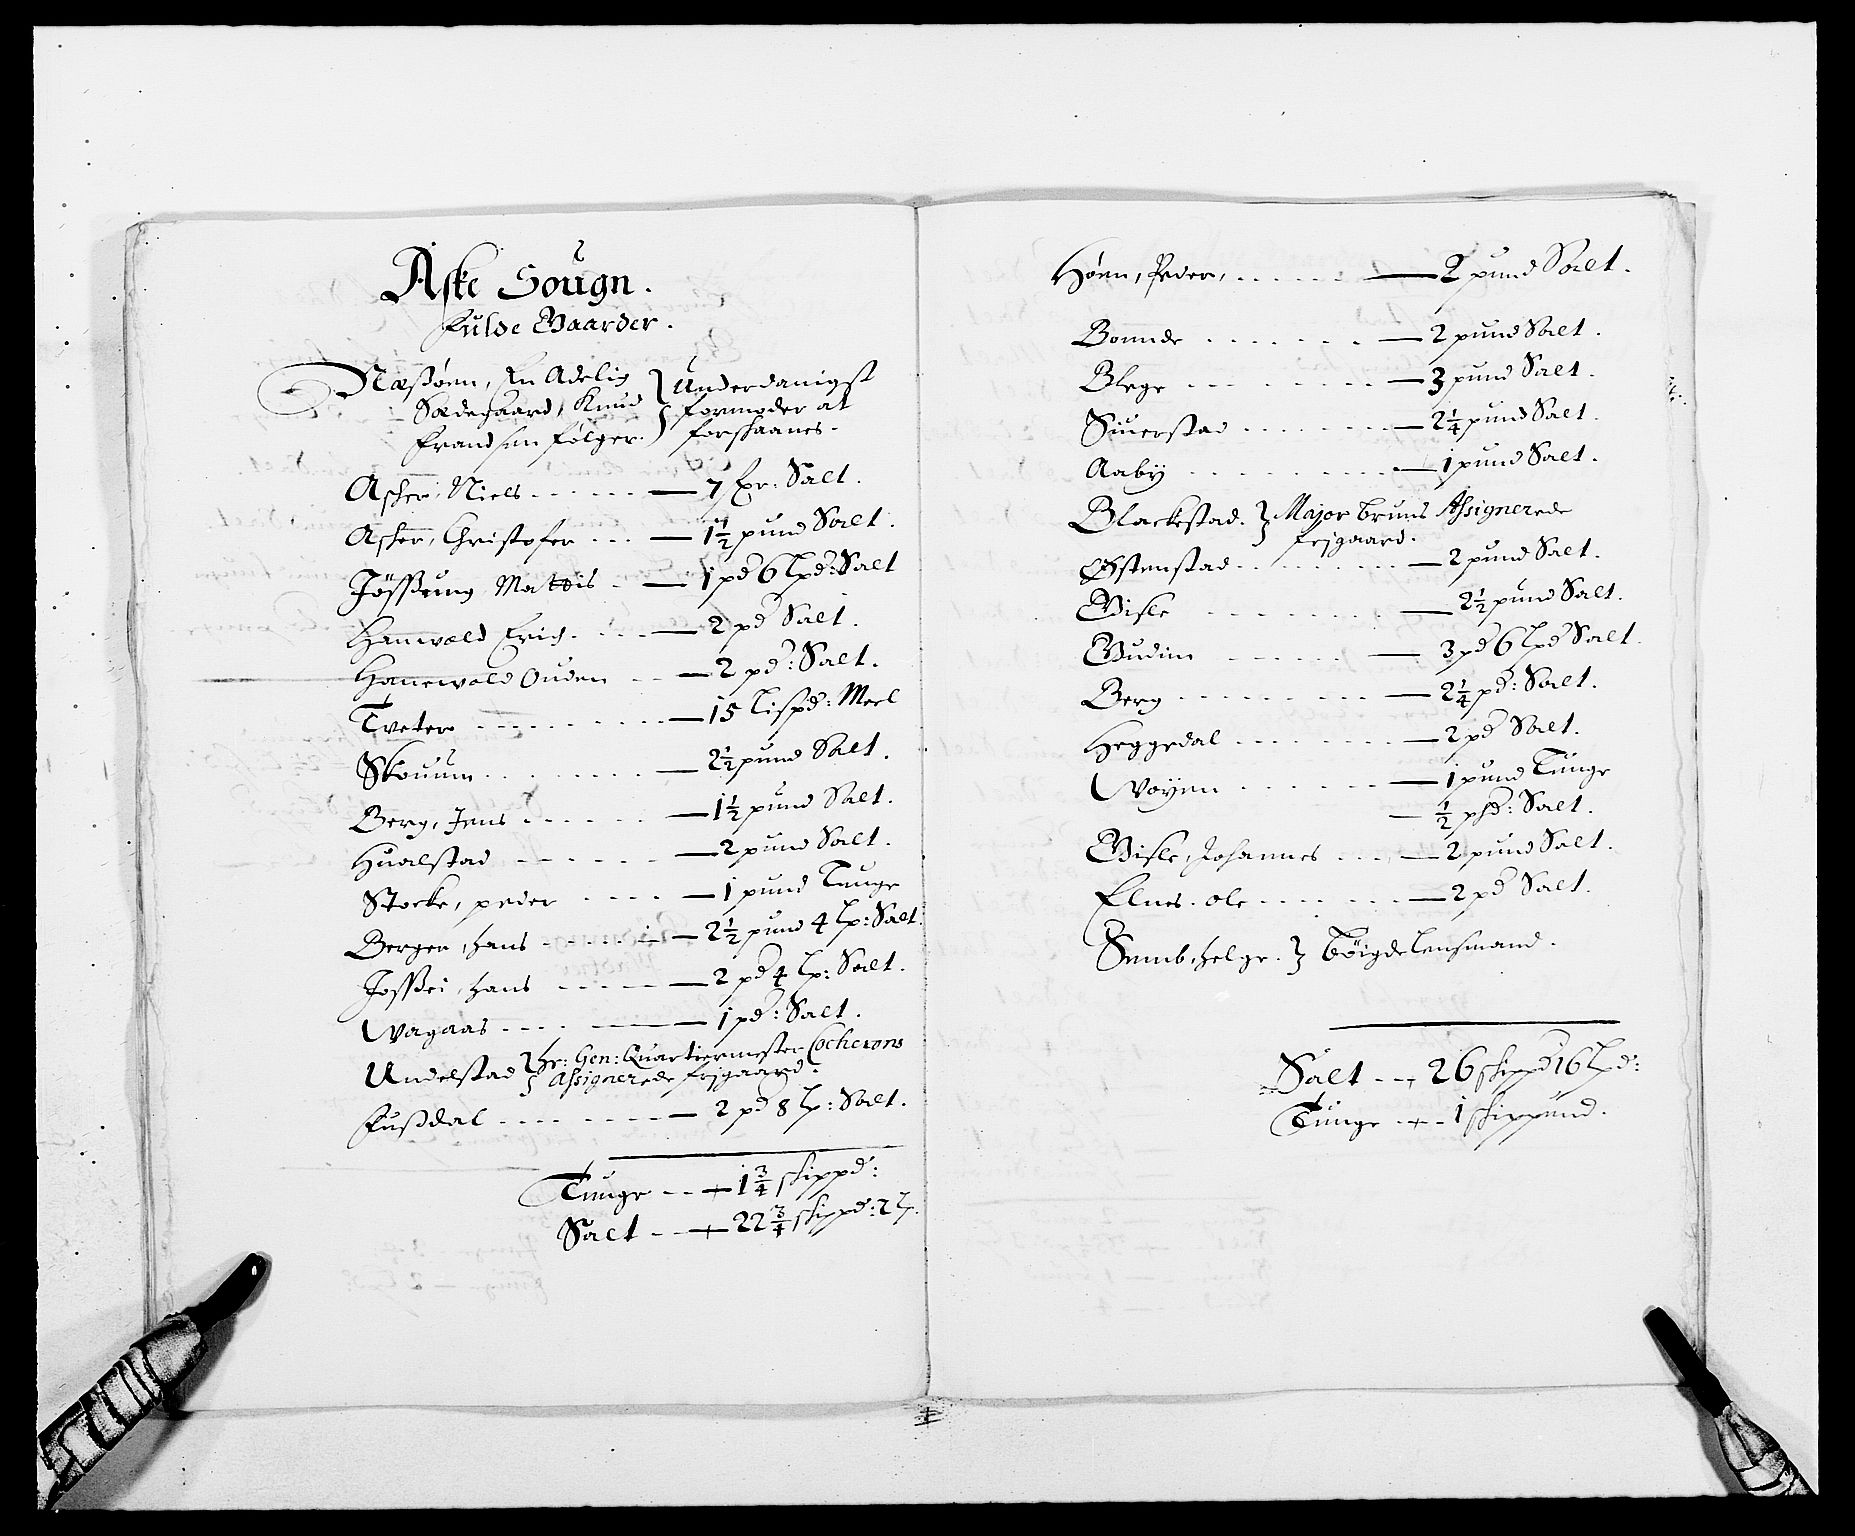 Aske Sougn.
Fulde Gaarder.
Næsøen, En Adelig } Underdanigst
Sædegaard, Knud } formoder at
Frandsen følger. } forskaanes.
Asker, Niels - - - - - 7 fr: Salt.
Asker, Christofer - - - 1½ pund Salt.
Jøssung Mattis - - 1 pd 6 lpd: Salt
Hanevold Erich. - - - 2 pd Salt.
Hanevold Ouden - - 2 pd: Salt.
Tveter - - - - - - 15 Lispd: Meel
Skouum - - - - - - 2½ pund Salt.
Berg, Jens - - - - - 1½ pund Salt.
Hualstad - - - - - 2 pund Salt.
Stocke, peder - - - - 1 pund Tunge
Berger, hans - - - - - 2½ pund 4 lp: Salt.
Josssei, hans - - - - - 2 pd 4 lp: Salt.
Wagaas - - - - - 1 pd: Salt.
Undelstad } hr: Gen: Quartiermester Cocherons
} Assignerede frjgaard.
Fusdal - - - - - - 2 pd 8 lp: Salt.
Tunge - - + 1¾ skippd:
Salt - - + 22¾ skippd: 2 lp.
Høen, Peder, - - - - - 2 pund Salt.
Bonnde - - - - - - 2 pund Salt.
Blege - - - - - - 3 pund Salt.
Siuerstad - - - - - 2¼ pund Salt.
Aaby - - - - - - 1 pund Salt.
Blackestad. } Major bruns Assignerede
frjgaard.
Østenstad - - - - - - 2 pund Salt.
Gisle - - - - - - 2½ pund Salt.
Gudim - - - - - - 3 pd 6 lpd Salt.
Berg - - - - - - 2¼ pd: Salt.
Heggedal - - - - - - 2 pd Salt.
Woyen - - - - - - 1 pund Tunge
- ½ pd: Salt.
Gisle, Johannes - - - 2 pund Salt.
Elnes. ole - - - - - - 2 pd Salt.
Semb, helge. } bøigdelensmand.
Salt - + 26 skippd 16 lpd:
Tunge - + - 1 skippund.